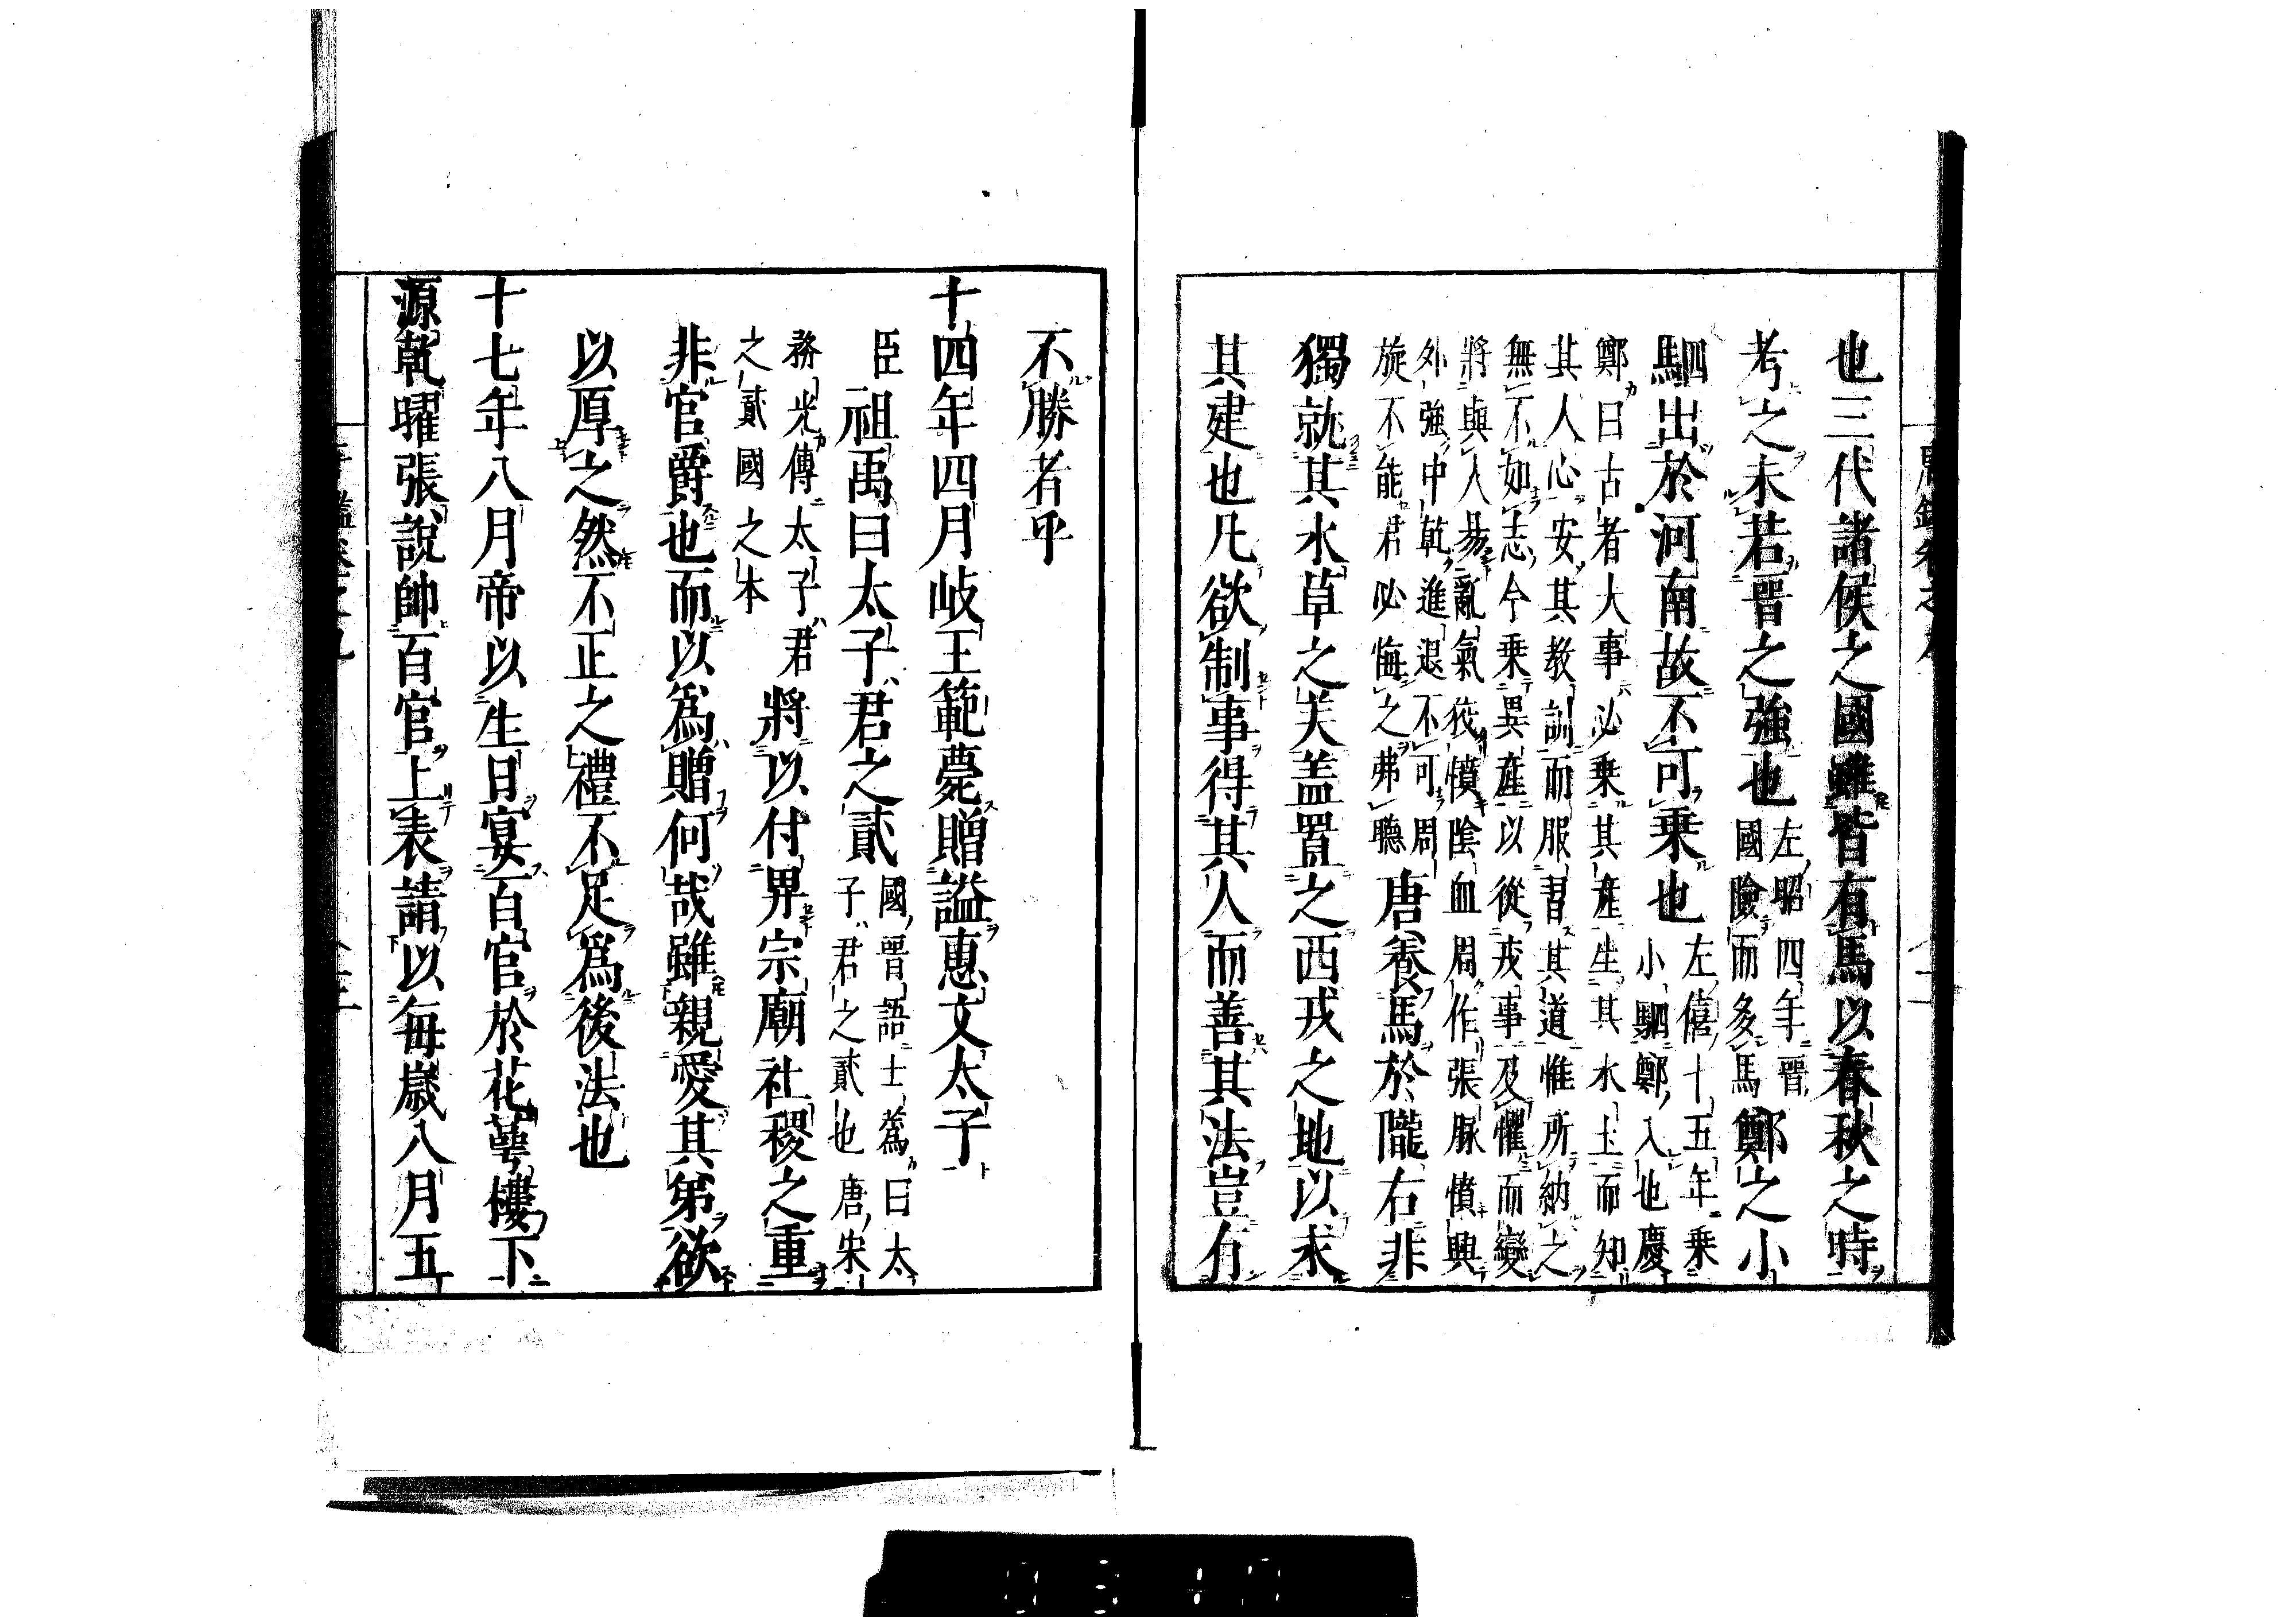 也三代諸侯之國雖皆有馬以春秋之時
考之未若晋之強也左昭四年晋國險而多馬鄭之小
駟出於河南故不可乗也左僖十五年乗小駟鄭入也慶
鄭曰古者大事必乗其産生其水土而知
其人心安其教訓而服習其道惟所納之
無不如志今乗異産以從戎事及懼而變
將與人易亂氣狡憤陰血周作張脉憤興
外強中乾進退不可周旋不能君必悔之弗聽唐養馬於隴右非
獨就其水草之美盖置之西戎之地以求
其建也凡欲制事得其人而善其法豈有
不勝者乎
十四年四月岐王範薨贈謚惠文太子
臣祖禹曰太子君之貳國晋語士蔿曰太子君之貳也唐宋
務光傳太子君之貳國之本將以付畀宗廟社稷之重
非官爵也而以爲贈何哉雖親愛其弟欲
以厚之然不正之禮不足爲後法也
十七年八月帝以生日宴百官於花萼樓下
源乾曜張說帥百官上表請以每歳八月五